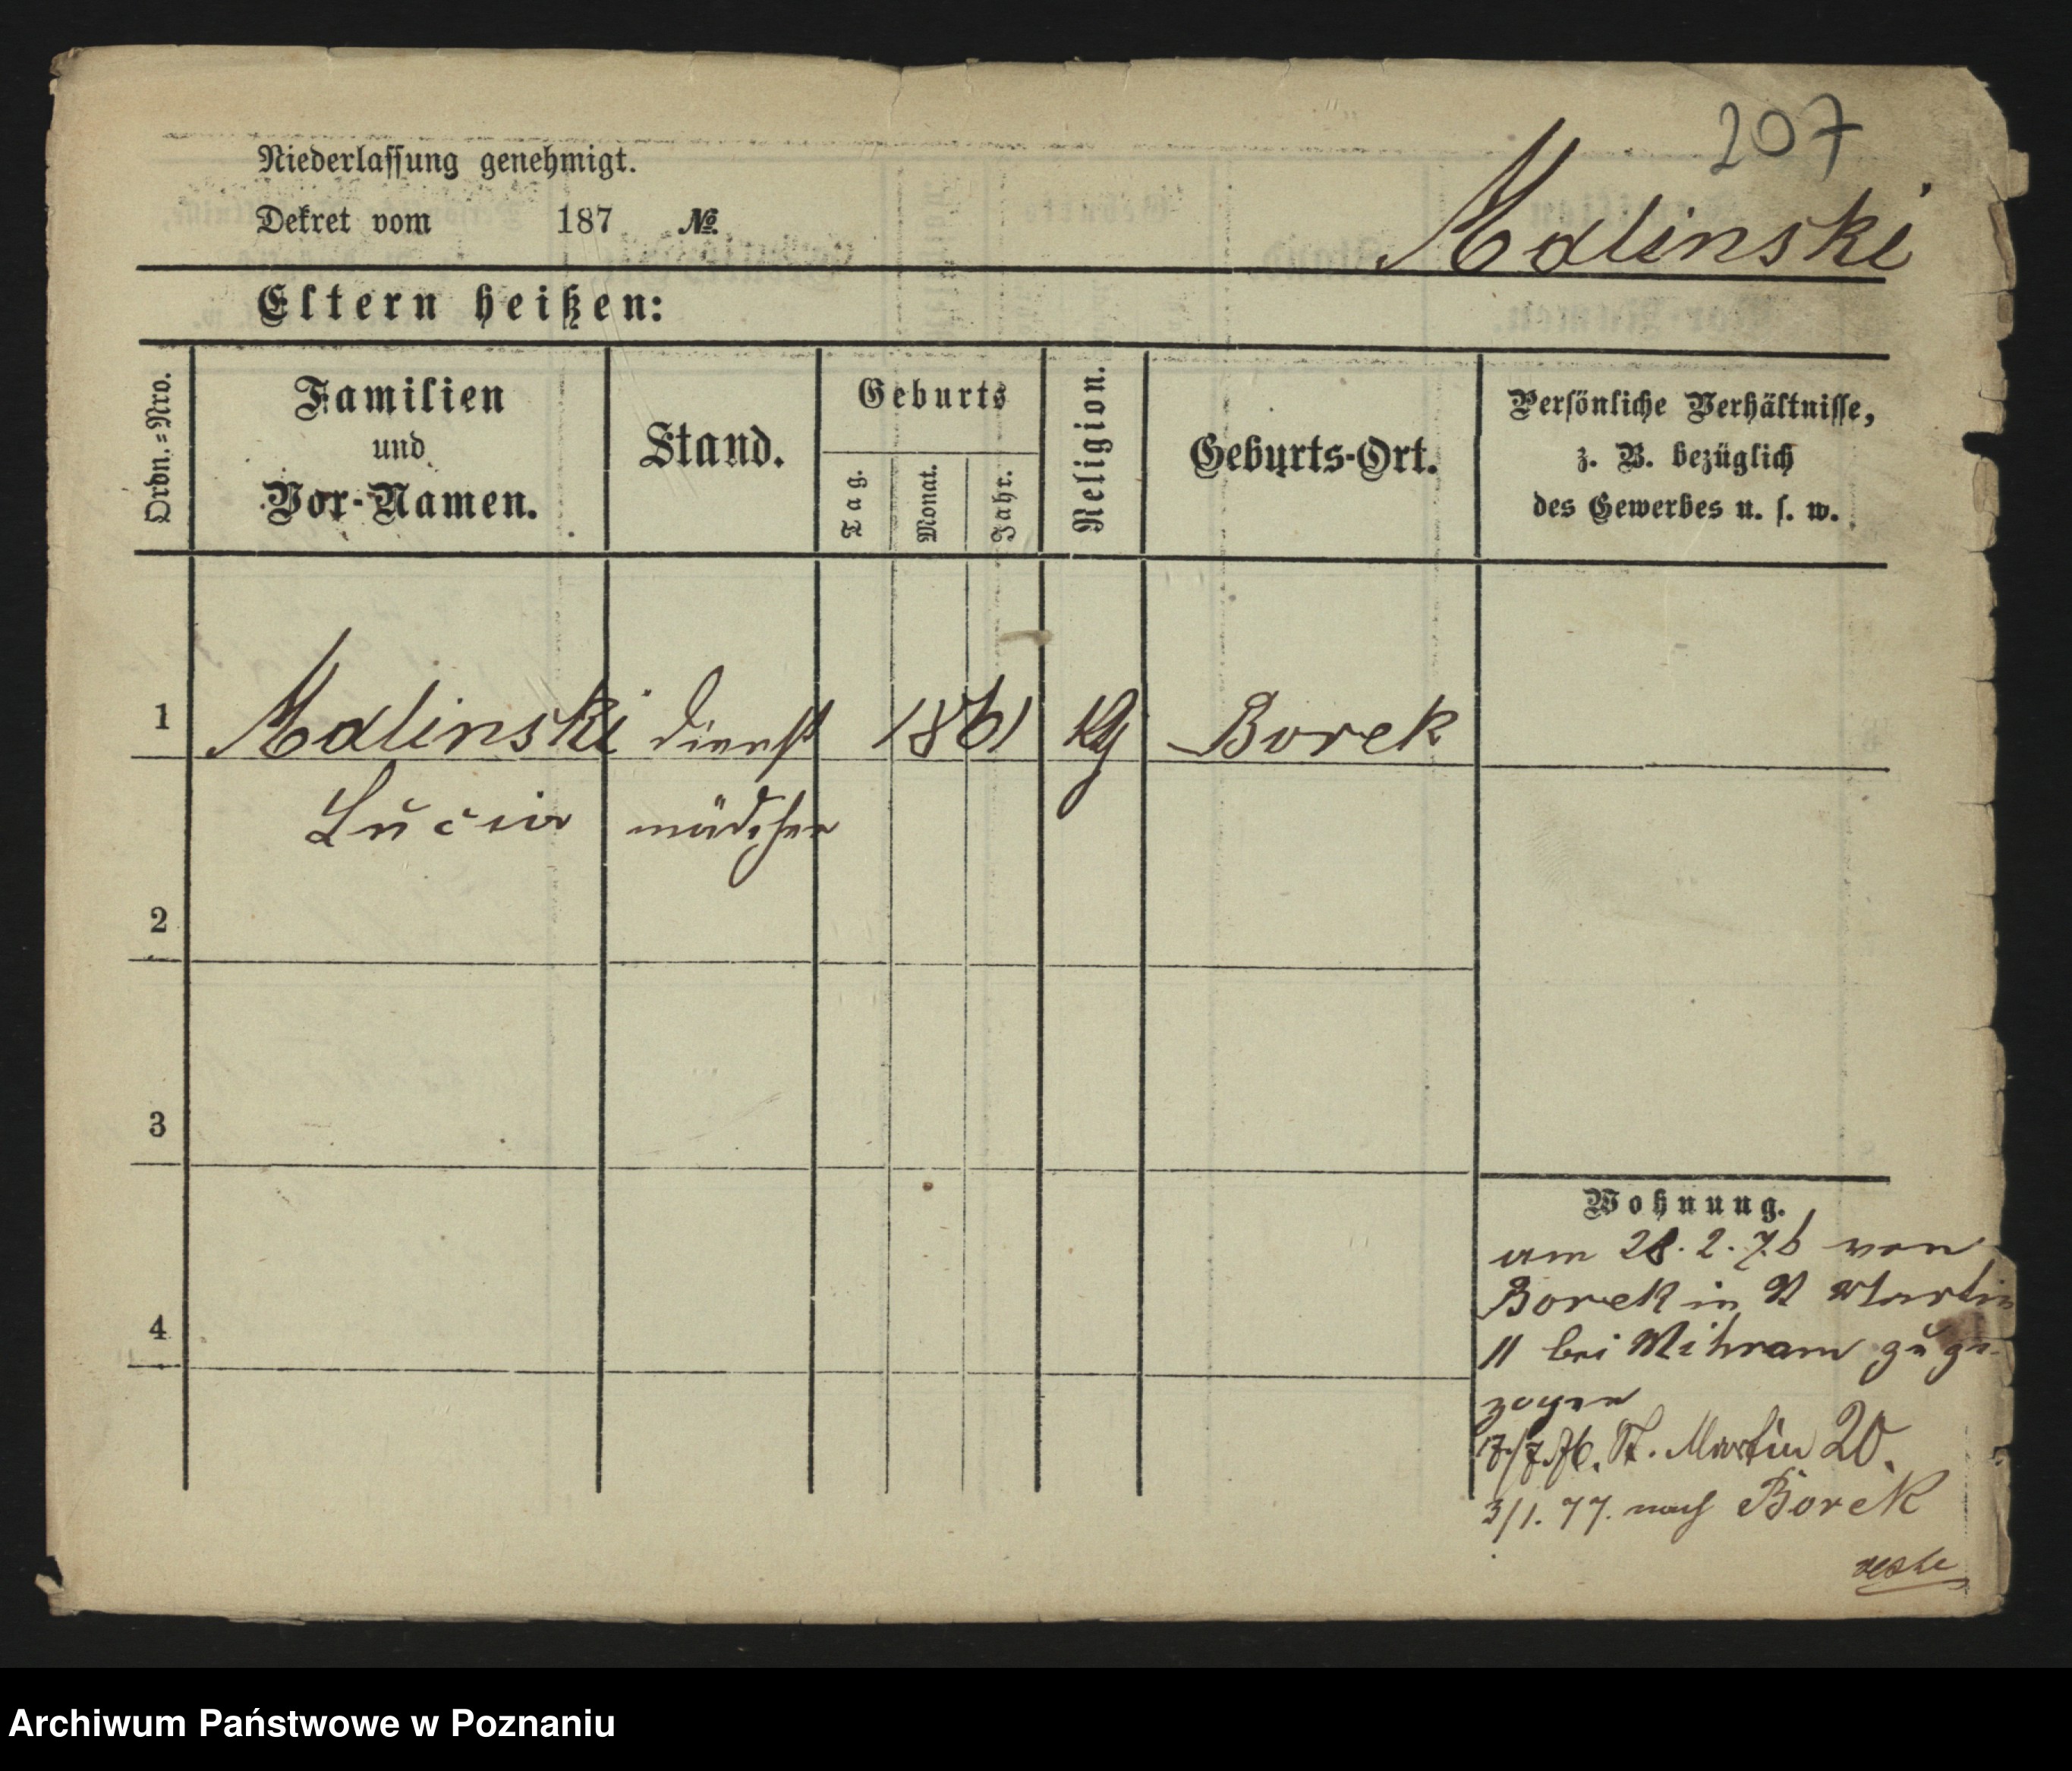 207
Niederlassung genehmigt.
Dekret vom 187 №
Malinski
Eltern heißen:
Ordn.=Nro.
Familien
und
Vor-Namen.
Stand.
Geburts
Tag.
Monat.
Jahr.
Religion.
Geburts-Ort.
Persönliche Verhältnisse,
z. B. bezüglich
des Gewerbes u. s. w.
1 Malinski Dienst 1861 Borek
Lucia mädchen
2
3
4
Wohnung.
am 28. 2. 76 von
Borek in St Martin
11 bei zuge-
zogen
17/7. 76. St. Martin 20.
3/1. 77. nach Borek
Archiwum Państwowe w Poznaniu